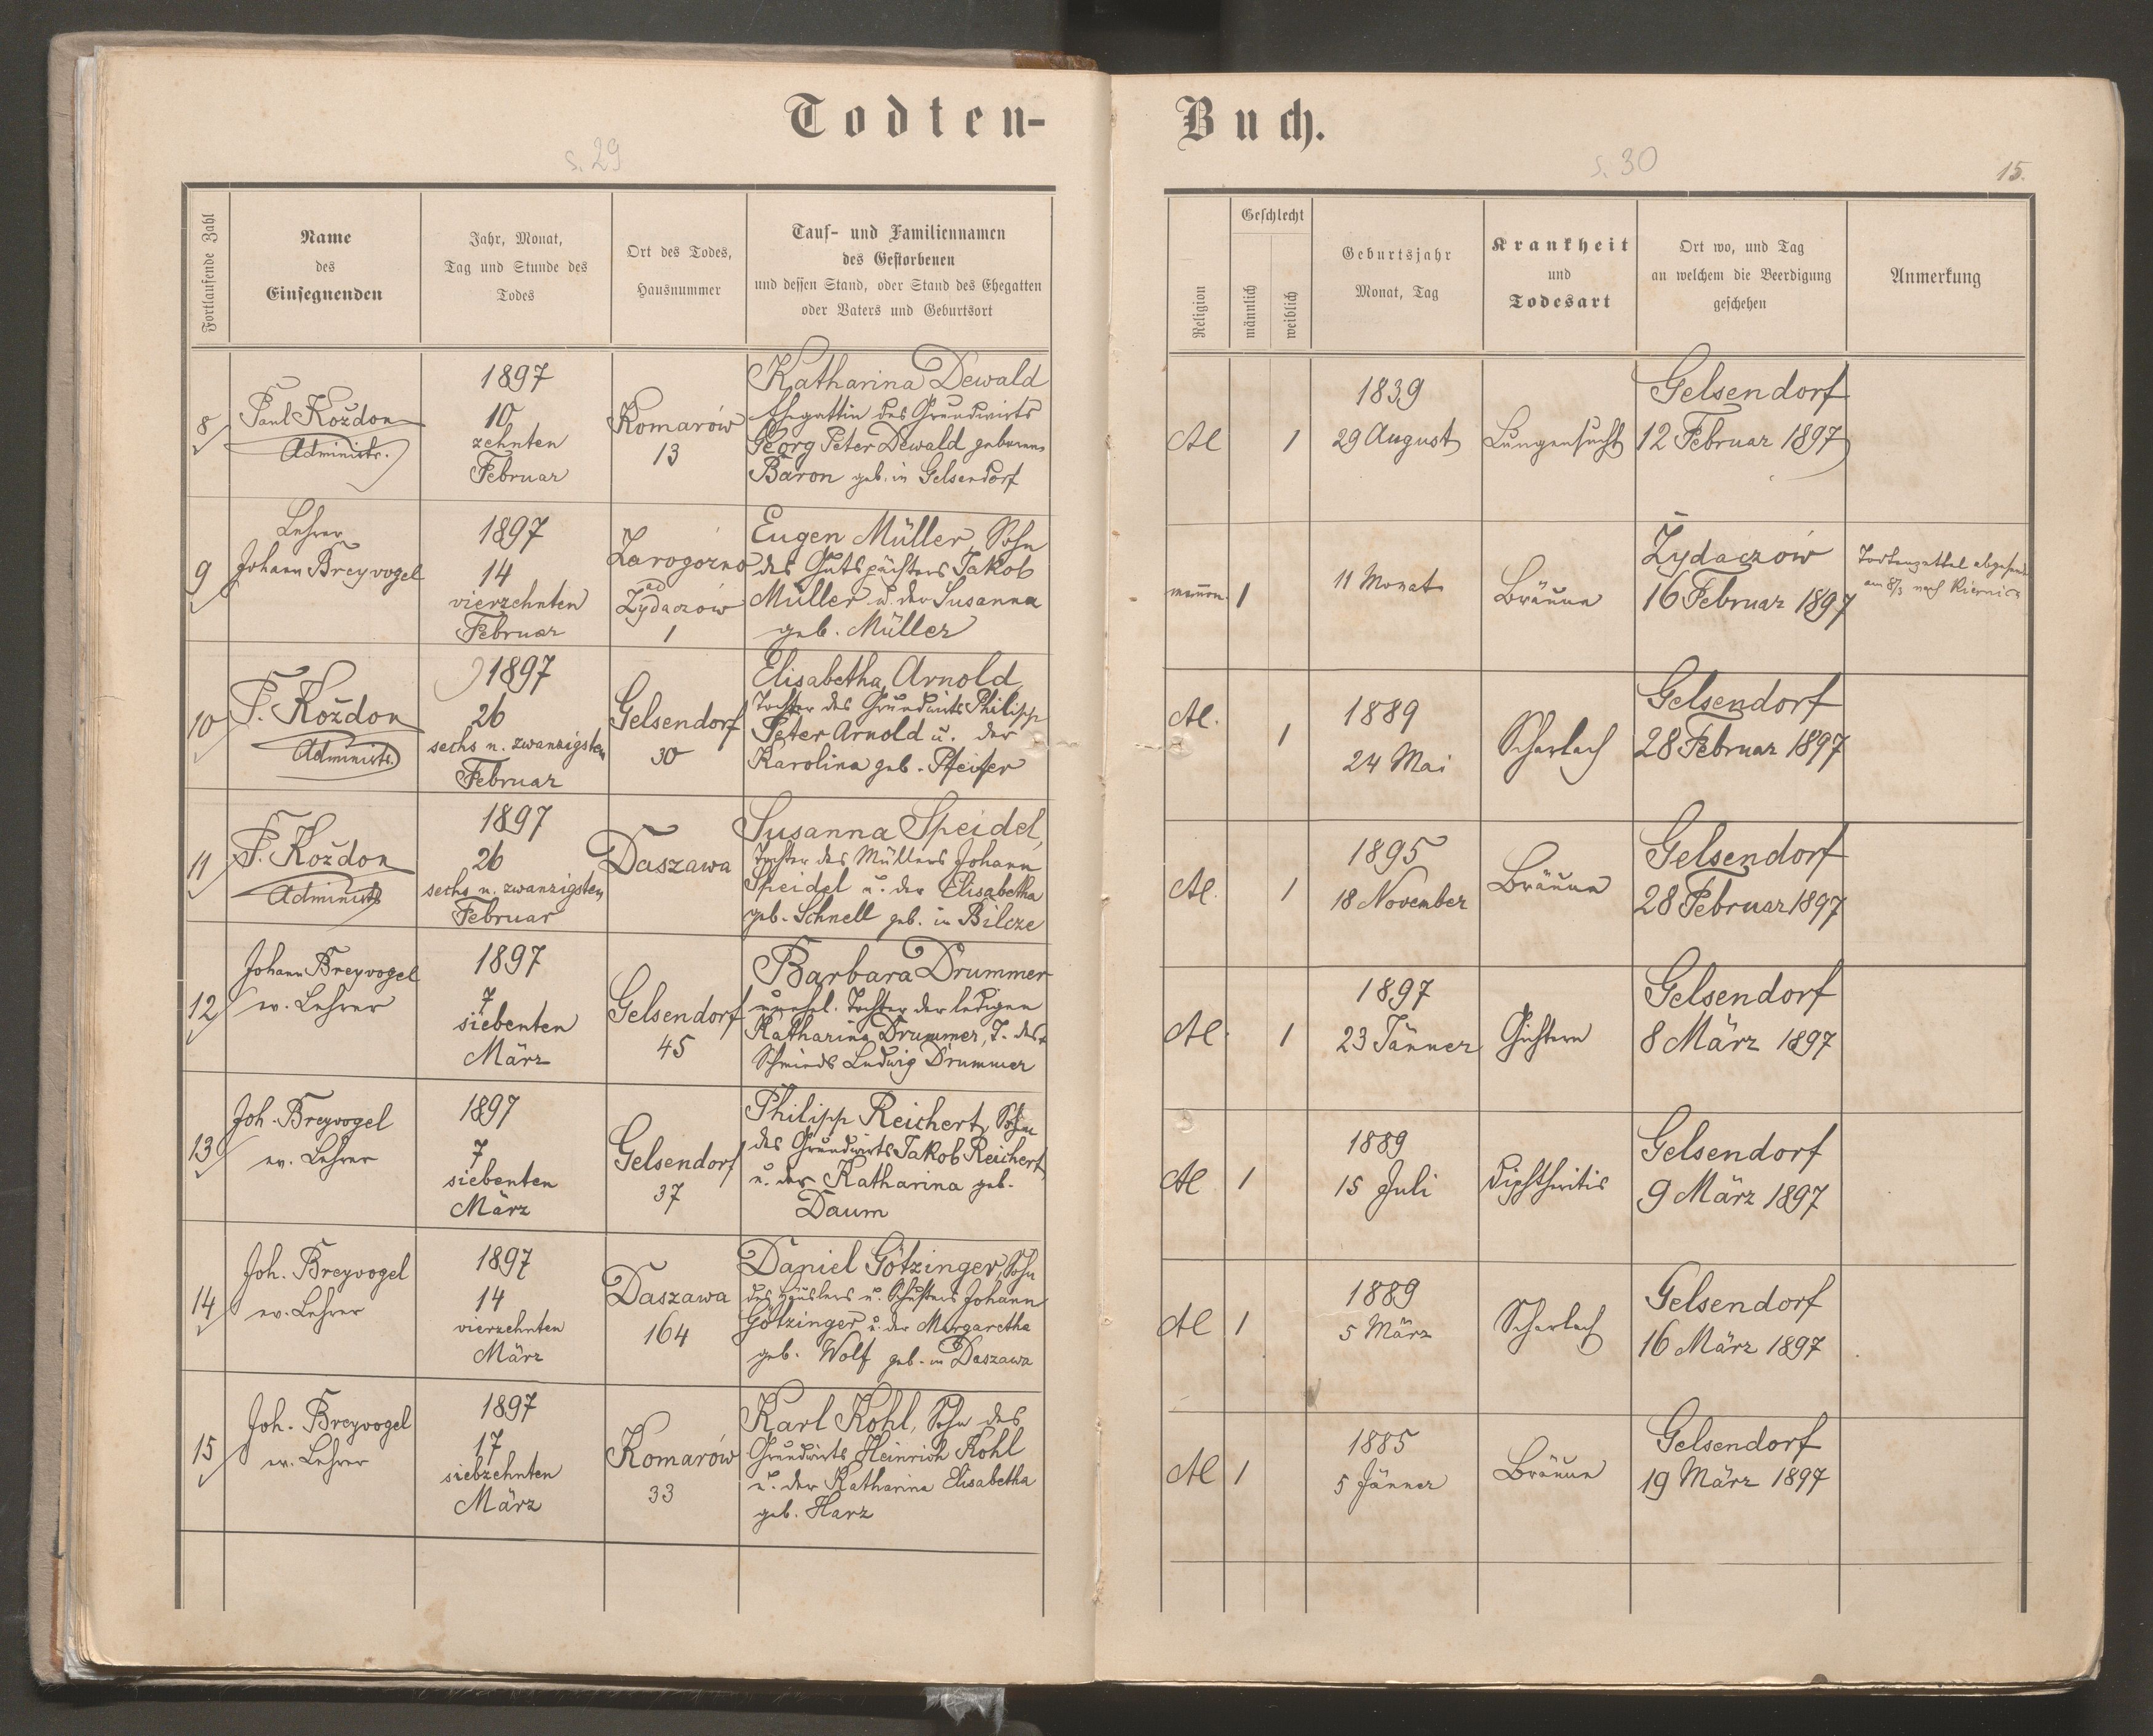 Todten-
Buch.
s. 29
s. 30
15.
Fortlaufende Zahl
Name
des
Einsegnenden
Jahr, Monat,
Tag und Stunde des
Todes
Ort des Todes,
Hausnummer
Tauf- und Familiennamen
des Gestorbenen
und dessen Stand, oder Stand des Ehegatten
oder Vaters und Geburtsort
Religion
Geschlecht
männlich
weiblich
Geburtsjahr
Monat, Tag
Krankheit
und
Todesart
Ort wo, und Tag
an welchem die Beerdigung
geschehen
Anmerkung
8
Paul Kożdon
Administr.
1897
10
zehnten
Februar
Komarów
13
Katharina Dewald
Ehegattin des Grundwirts
Georg Peter Dewald geborene
Baron geb. in Gelsendorf
AC
1
1839
29 August
Lungensucht
Gelsendorf
12 Februar 1897
9
Lehrer
Johann Breyvogel
1897
14
vierzehnten
Februar
Zarogozno
ad
Żydaczów
1
Eugen Müller, Sohn
des Gutspächters Jakob
Müller u. der Susanna
geb. Müller
mennon.
1
11 Monat
Bräune
Żydaczów
16 Februar 1897
Todtenzettel abgesend
am 8/3 nach Kiernica
10
P. Kożdon
Administr
1897
26
sechs u. zwanzigsten
Februar
Gelsendorf
30
Elisabetha Arnold
Tochter des Grundwirts Philipp
Peter Arnold u. der
Karolina geb. Pfeifer
AC.
1
1889
24 Mai
Scharlach
Gelsendorf
28 Februar 1897
11
P. Kożdon
Administr
1897
26
sechs u. zwanzigsten
Februar
Daszawa
Susanna Speidel,
Tochter des Müllers Johann
Speidel u. der Elisabetha
geb. Schnell geb. in Bilcze
AC.
1
1895
18 November
Bräune
Gelsendorf
28 Februar 1897
12
Johann Breyvogel
ev. Lehrer
1897
7
siebenten
März
Gelsendorf
45
Barbara Drummer
unehel. Tochter der ledigen
Katharina Drummer, T. des
Schmieds Ludwig Drummer
AC.
1
1897
23 Jänner
Gichtern
Gelsendorf
8 März 1897
13
Joh. Breyvogel
ev. Lehrer
1897
7
siebenten
März
Gelsendorf
37
Philipp Reichert, Sohn
des Grundwirts Jakob Reichert
u. der Katharina geb.
Daum
AC
1
1889
15 Juli
Diphtheritis
Gelsendorf
9 März 1897
14
Joh. Breyvogel
ev. Lehrer
1897
14
vierzehnten
März
Daszawa
164
Daniel Götzinger, Sohn
des Häuslers u. Schusters Johann
Götzinger u. der Margaretha
geb. Wolf geb. in Daszawa
AC
1
1889
5 März
Scharlach
Gelsendorf
16 März 1897
15
Joh. Breyvogel
ev. Lehrer
1897
17
siebzehnten
März
Komarów
33
Karl Kohl, Sohn des
Grundwirts Heinrich Kohl
u. der Katharina Elisabetha
geb. Harz
AC
1
1885
5 Jänner
Bräune
Gelsendorf
19 März 1897